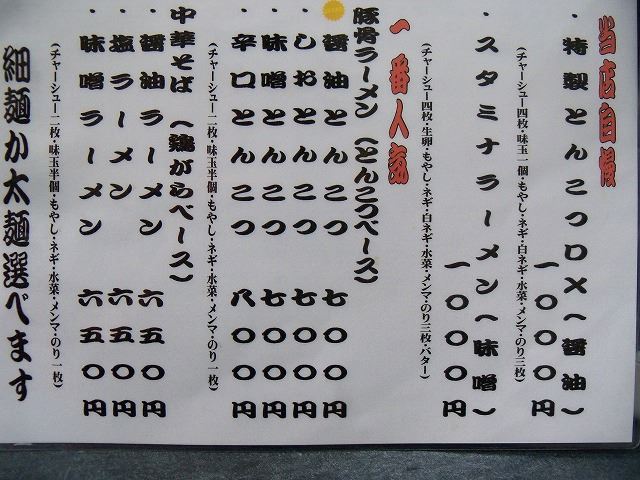 当店自慢
・特製とんこつDX(醤油)
一〇〇〇円
(チャーシュー四枚・味玉一個・もやし・ネギ・白ネギ・水菜・メンマ・のり三枚)
・スタミナラーメン(味噌)
一〇〇〇円
(チャーシュー四枚・生卵・もやし・ネギ・白ネギ・水菜・メンマ・のり三枚・バター)
一番人気
豚骨ラーメン (とんこつベース)
・醤油とんこつ 七〇〇円
・しおとんこつ 七〇〇円
・味噌とんこつ 七〇〇円
・辛口とんこつ 八〇〇円
(チャーシュー二枚・味玉半個・もやし・ネギ・水菜・メンマ・のり一枚)
中華そば (鶏がらベース)
・醤油ラーメン 六五〇円
・塩ラーメン 六五〇円
・味噌ラーメン 六五〇円
(チャーシュー二枚・味玉半個・もやし・ネギ・水菜・メンマ・のり一枚)
細麺か太麺選べます